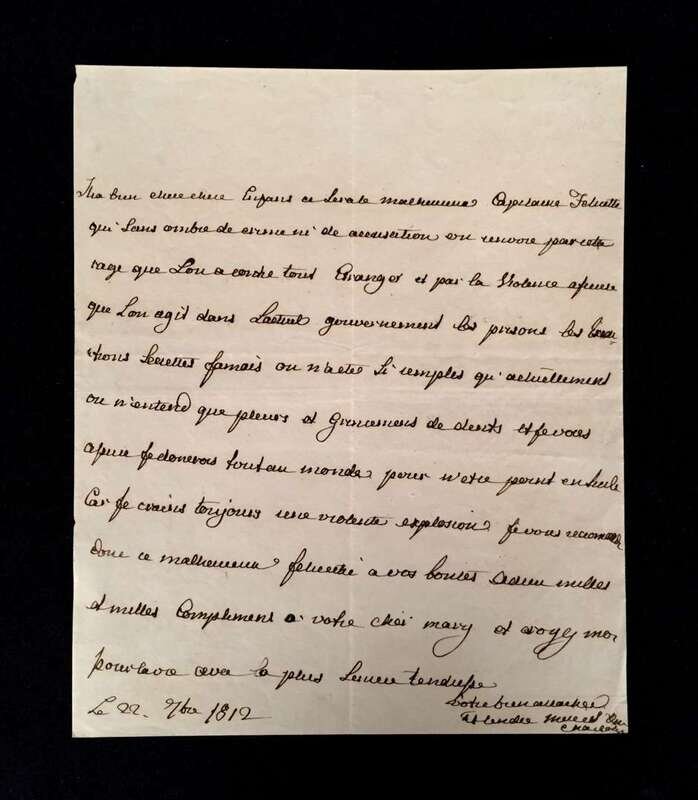 Ma bien chere chere Enfans ce sera le malheureux Capitaine Felicette
qui sans ombre de crime ni de accusation on renvoie par cette
rage que Lon a contre tous Etranger et par la Violence affreuse
que Lon agit dans Lactuel gouvernement les prisons les Execu-
-tions secrettes Jamais on n'a eté si remples qu'actuellement
on n'entend que pleurs et Grincemens de dents et je vous
assure je donerais tout au monde pour n'etre point en Sicile
Car Je crains toujours une violente explosion Je vous recomande
donc ce malheureux felicette a vos bontés adieu milles
et milles Compliment a votre cher mary et croyez moi
pour la vie avec la plus sincere tendresse
Le 22. 7bre 1812
Votre bien attachée
et tendre
Charlotte